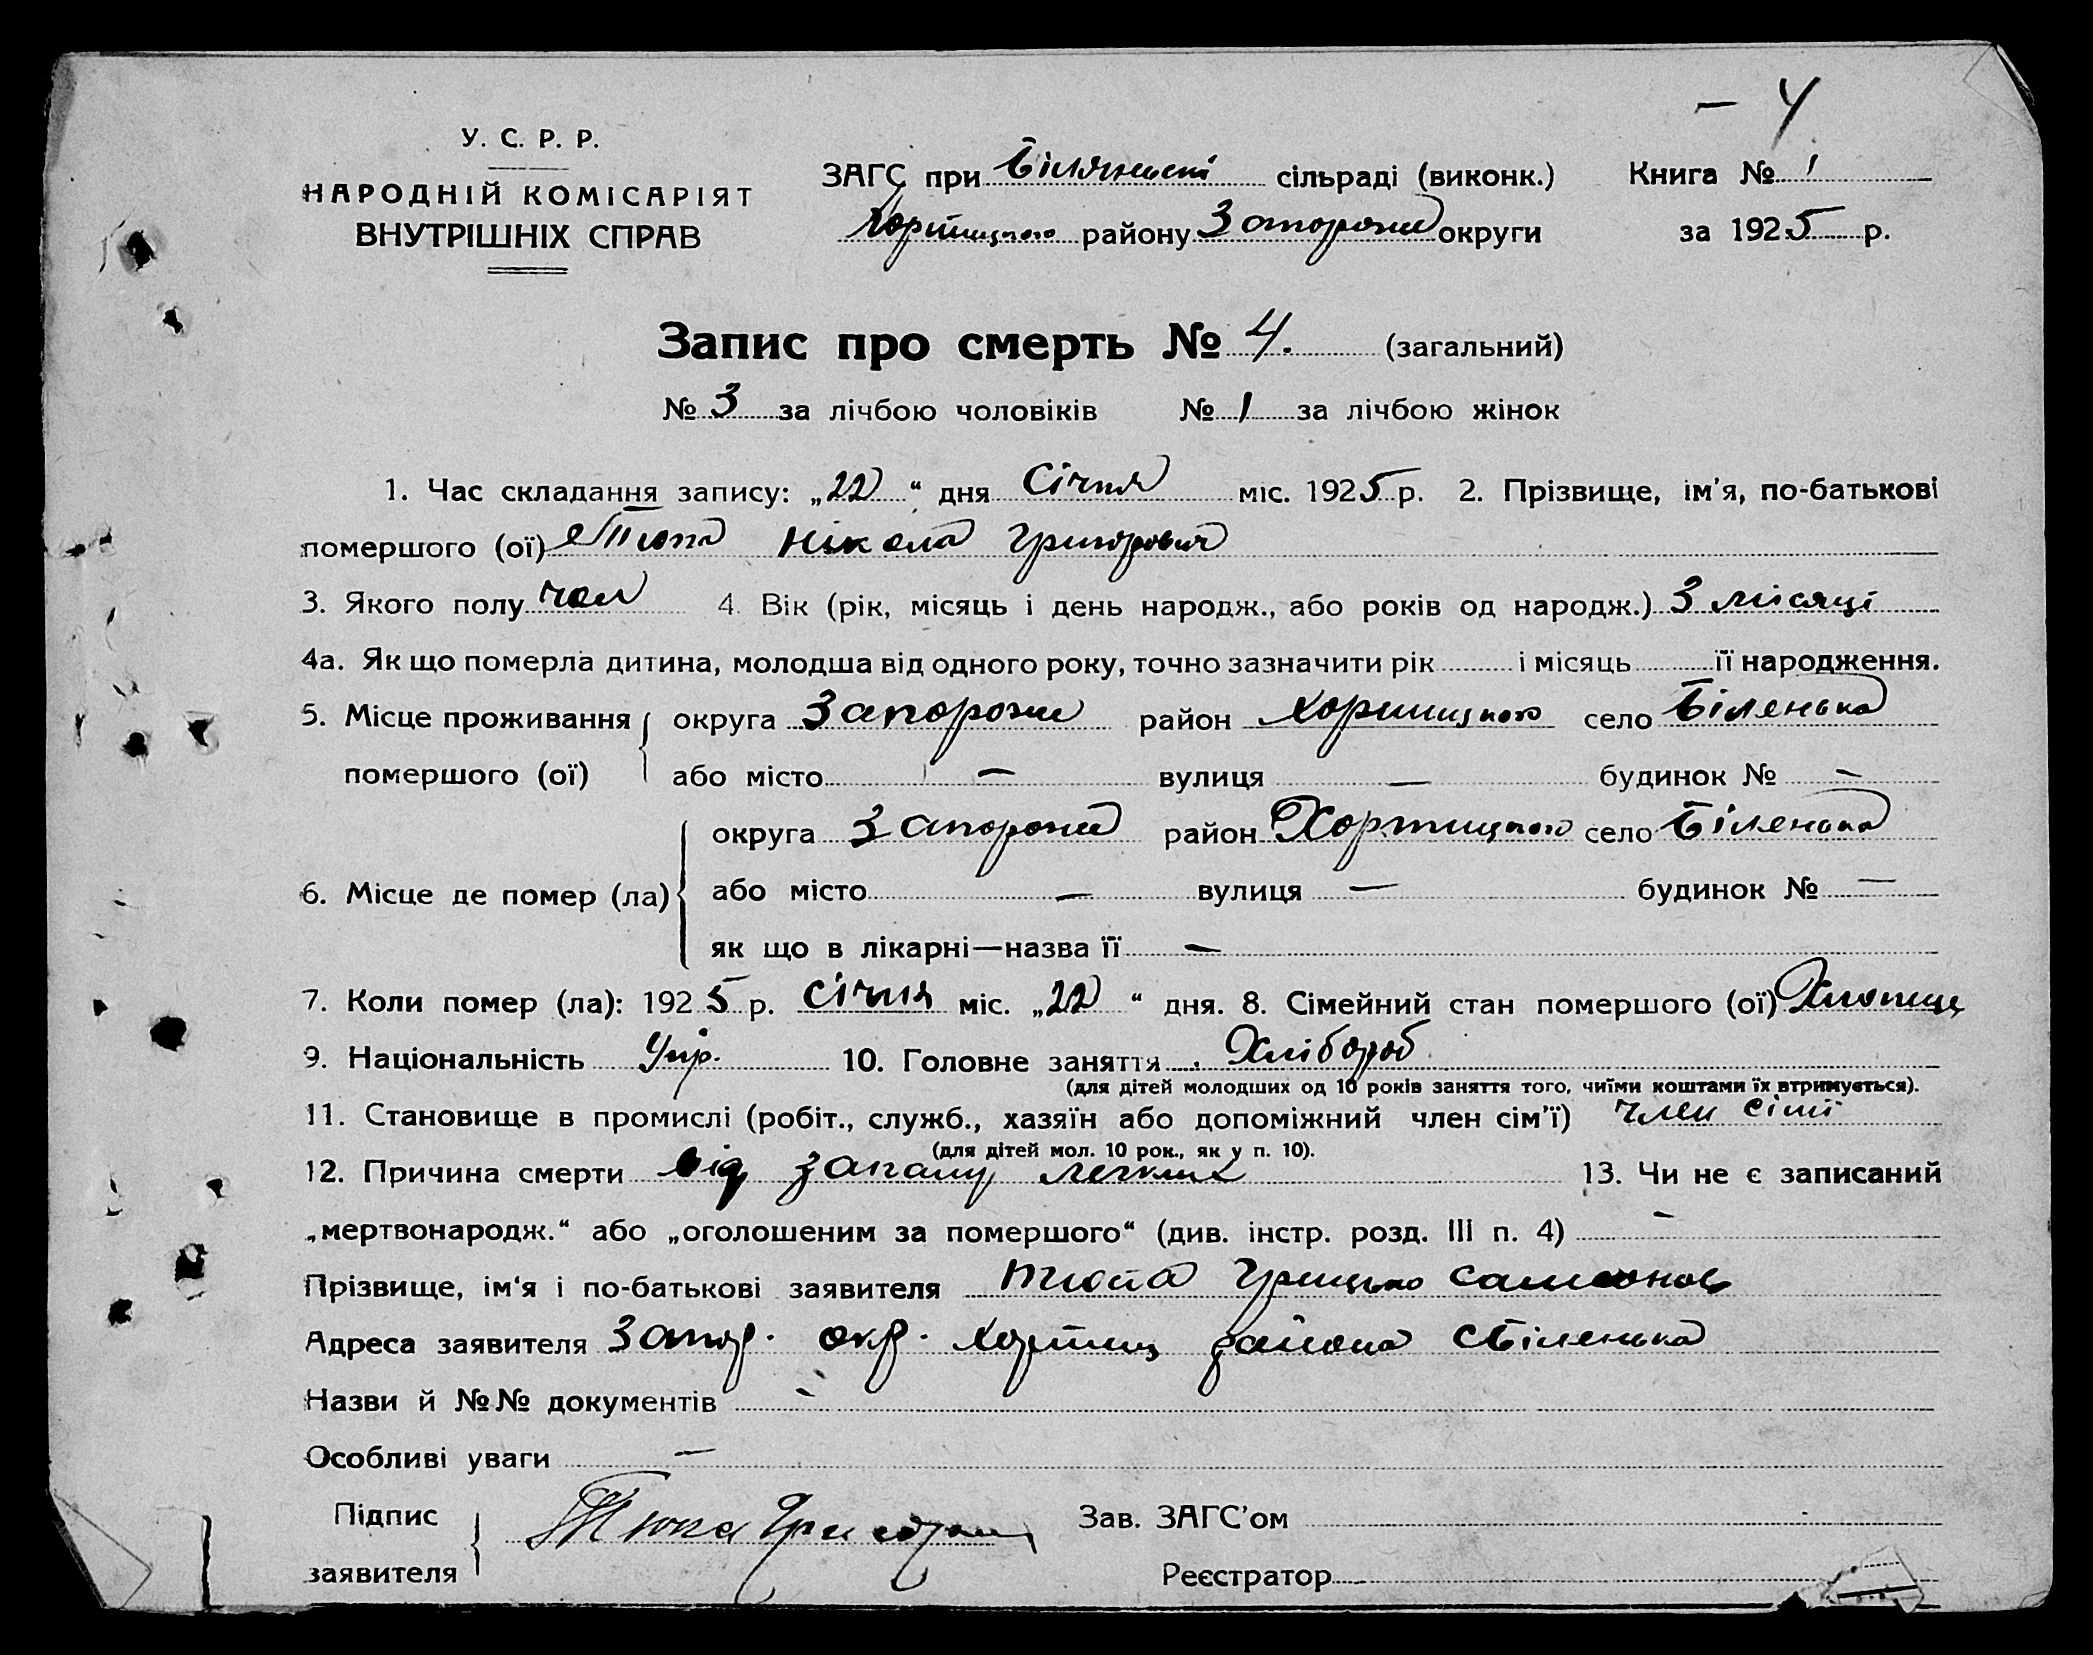 — 4
У. С. Р. Р.
НАРОДНІЙ КОМІСАРІЯТ
ВНУТРІШНІХ СПРАВ
ЗАГС при сільраді (виконк.) Книга № 1
Хортицького району Запорожж округи за 1925 р.
Запис про смерть № 4. (загальний)
№ 3 за лічбою чоловіків № 1 за лічбою жінок
1. Час складання запису: „22“ дня Січня міс. 1925 р. 2. Прізвище, ім'я, по-батькові
помершого (ої) Тюпа Нікола Григорович
3. Якого полу чол 4. Вік (рік, місяць і день народж., або років од народж.) 3 місяці
4а. Як що померла дитина, молодша від одного року, точно зазначити рік і місяць її народження.
5. Місце проживання округа Запорожж район Хортицького село Біленька
помершого (ої) або місто — вулиця — будинок № —
округа Запорожж район Хортицького село Біленька
6. Місце де помер (ла) або місто — вулиця — будинок № —
як що в лікарні—назва її —
7. Коли помер (ла): 1925 р. січня міс. „22“ дня. 8. Сімейний стан помершого (ої)
9. Національність Укр. 10. Головне заняття Хлібороб
(для дітей молодших од 10 років заняття того, чиїми коштами їх втримується).
11. Становище в промислі (робіт., служб., хазяїн або допоміжний член сім'ї) член сімї
(для дітей мол. 10 рок., як у п. 10).
12. Причина смерти від запалу легких 13. Чи не є записаний
„мертвонародж.“ або „оголошеним за помершого“ (див. інстр. розд. III п. 4) —
Прізвище, ім'я і по-батькові заявителя Тюпа Грицько
Адреса заявителя Запор. окр. Хортиц района с Біленька
Назви й №№ документів —
Особливі уваги —
Підпис Тюпа Зав. ЗАГС'ом
заявителя Реєстратор